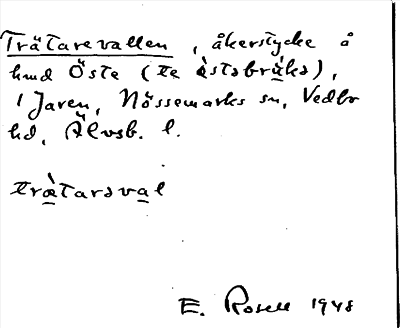 Trätarevallen, åkerstycke å
hmd Öste (te ȯ̀stəbru̱kə),
i Jaren, Nössemarks sn, Vedbo
hd, Älvsb. l.
træ̀tarəval
E. Rosell 1948